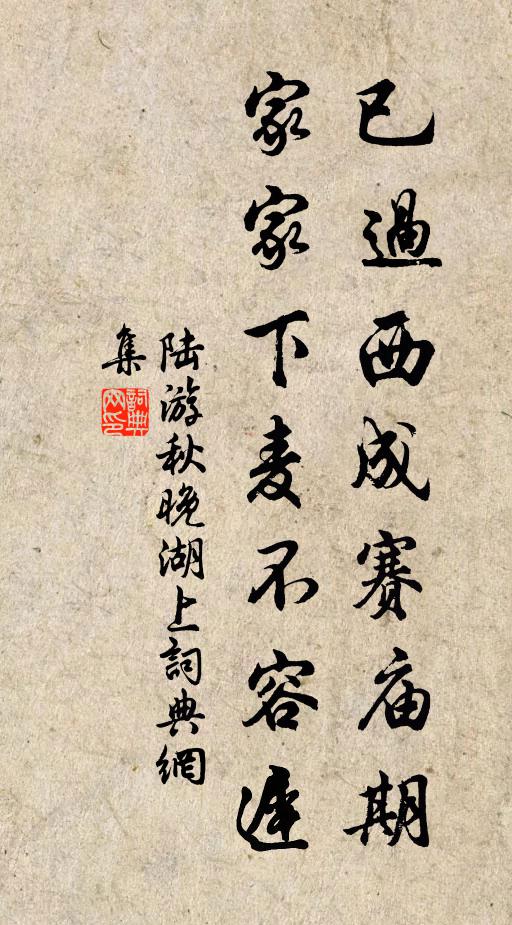 已過西成賽庙期
家家下麦不容遲
陆游秋晚湖上詞典網
集
詞典
网印